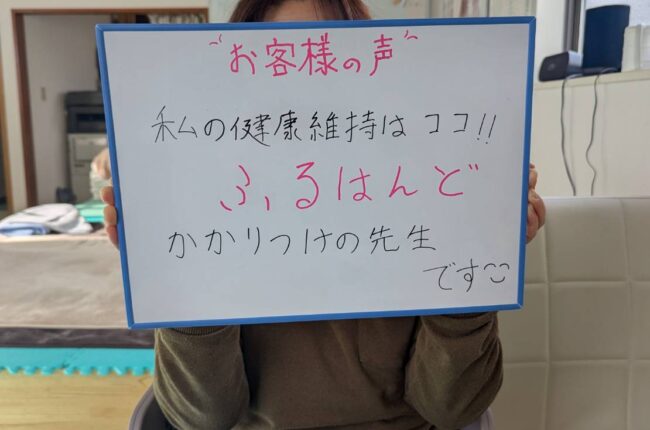 "お客様の声"
私の健康維持は ココ!!
ふるはんど
かかりつけの先生
です